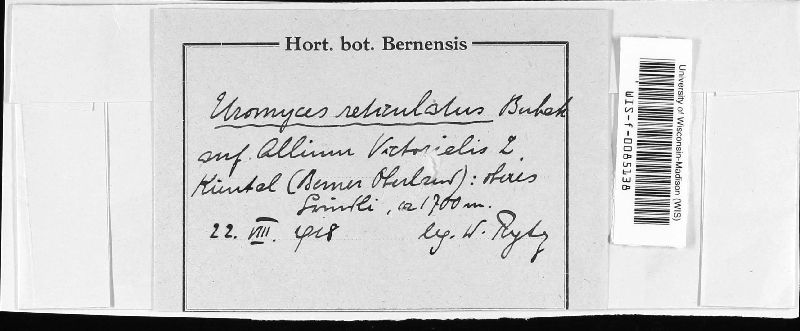 Hort. bot. Bernensis
Uromyces reticulatus Bubak
auf Allium Victorialis L.
Kiental (Berner Oberland): oberes
, ca 1700 m.
22. VIII. 1918 leg. W. Rytz
University of Wisconsin-Madison (WIS)
WIS-f-0085138